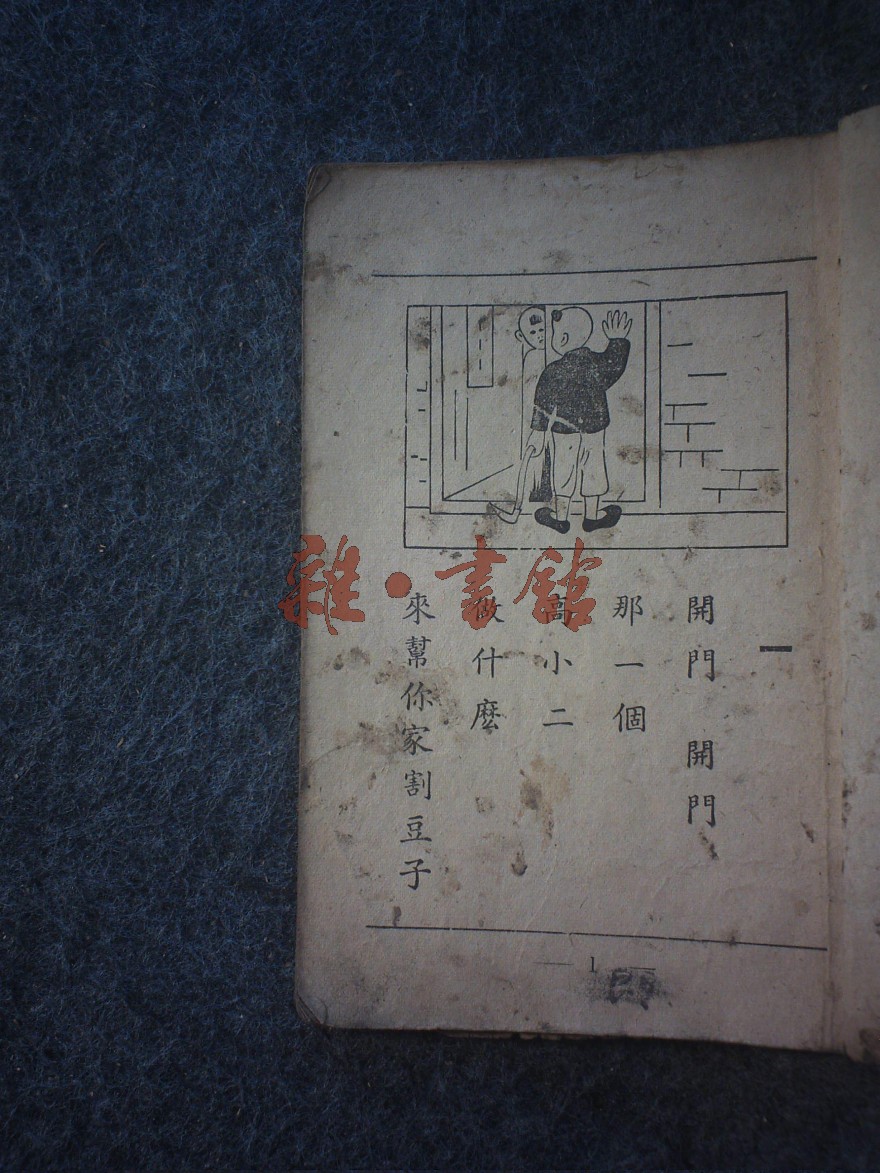 一
開門 開門
那一個
高小二
做什麽
來幫你家割豆子
— 1 —
雜·書館